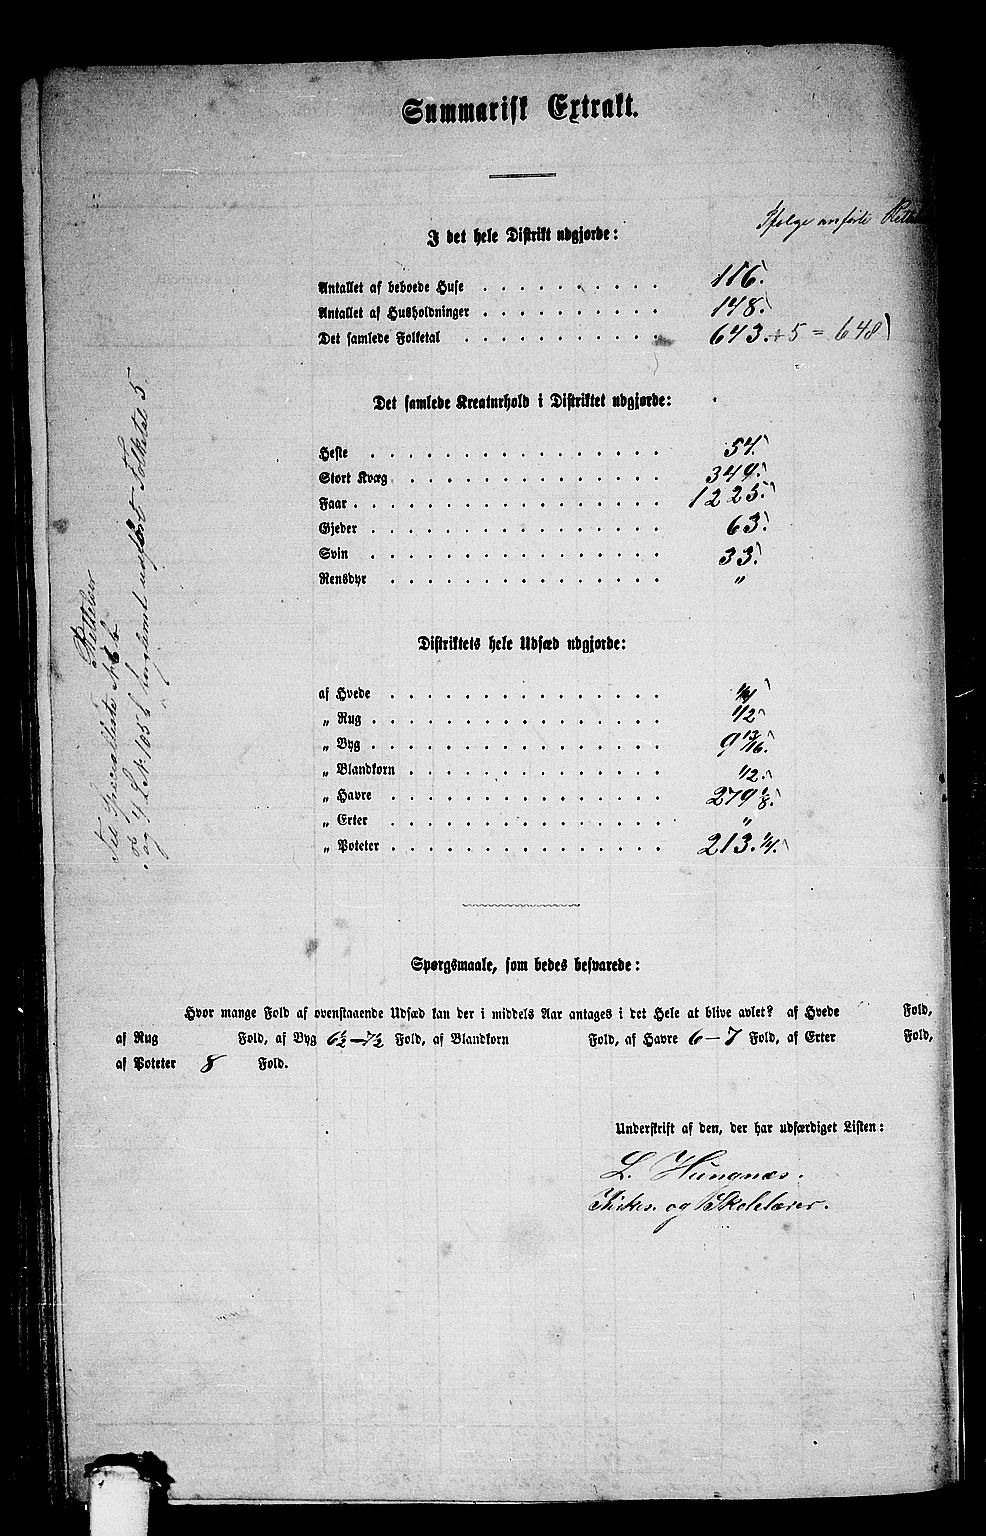 Summarisk Extrakt.
Ifølge anførte
I det hele Distrikt udgjorde:
Antallet af beboede Huse . . . . . . . . . . 116.
Antallet af Husholdninger . . . . . . . . . . 148.
Det samlede Folketal . . . . . . . . . . . 643. + 5 = 648
Det samlede Kreaturhold i Distriktet udgjorde:
Heste . . . . . . . . . . . . . . . 54.
Stort Kvæg . . . . . . . . . . . . . 349.
Faar . . . . . . . . . . . . . . . . 1225.
Gjeder . . . . . . . . . . . . . . 63.
Svin . . . . . . . . . . . . . . . 33.
Rensdyr . . . . . . . . . . . . . . "
Distriktets hele Udsæd udgjorde:
af Hvede . . . . . . . . . . . . . .
„ Rug . . . . . . . . . . . . . . . 1/2
„ Byg . . . . . . . . . . . . . . . 9 13/16.
„ Blandkorn . . . . . . . . . . . . . 1/2.
„ Havre . . . . . . . . . . . . . . 279 1/8.
„ Erter . . . . . . . . . . . . . . "
„ Poteter . . . . . . . . . . . . . . 213. 1/4.
Spørgsmaale, som bedes besvarede:
Hvor mange Fold af ovenstaaende Udsæd kan der i middels Aar antages i det Hele at blive avlet? af Hvede Fold,
af Rug Fold, af Byg 6½—7½ Fold, af Blandkorn Fold, af Havre 6—7 Fold, af Erter Fold,
af Poteter 8 Fold.
Underskrift af den, der har udfærdiget Listen:
L. Hungnæs.
Kirkes. og Skolelærer.
Rettelser
Til Specialliste No 6
og No 105 b forglemt udført Folketal 5